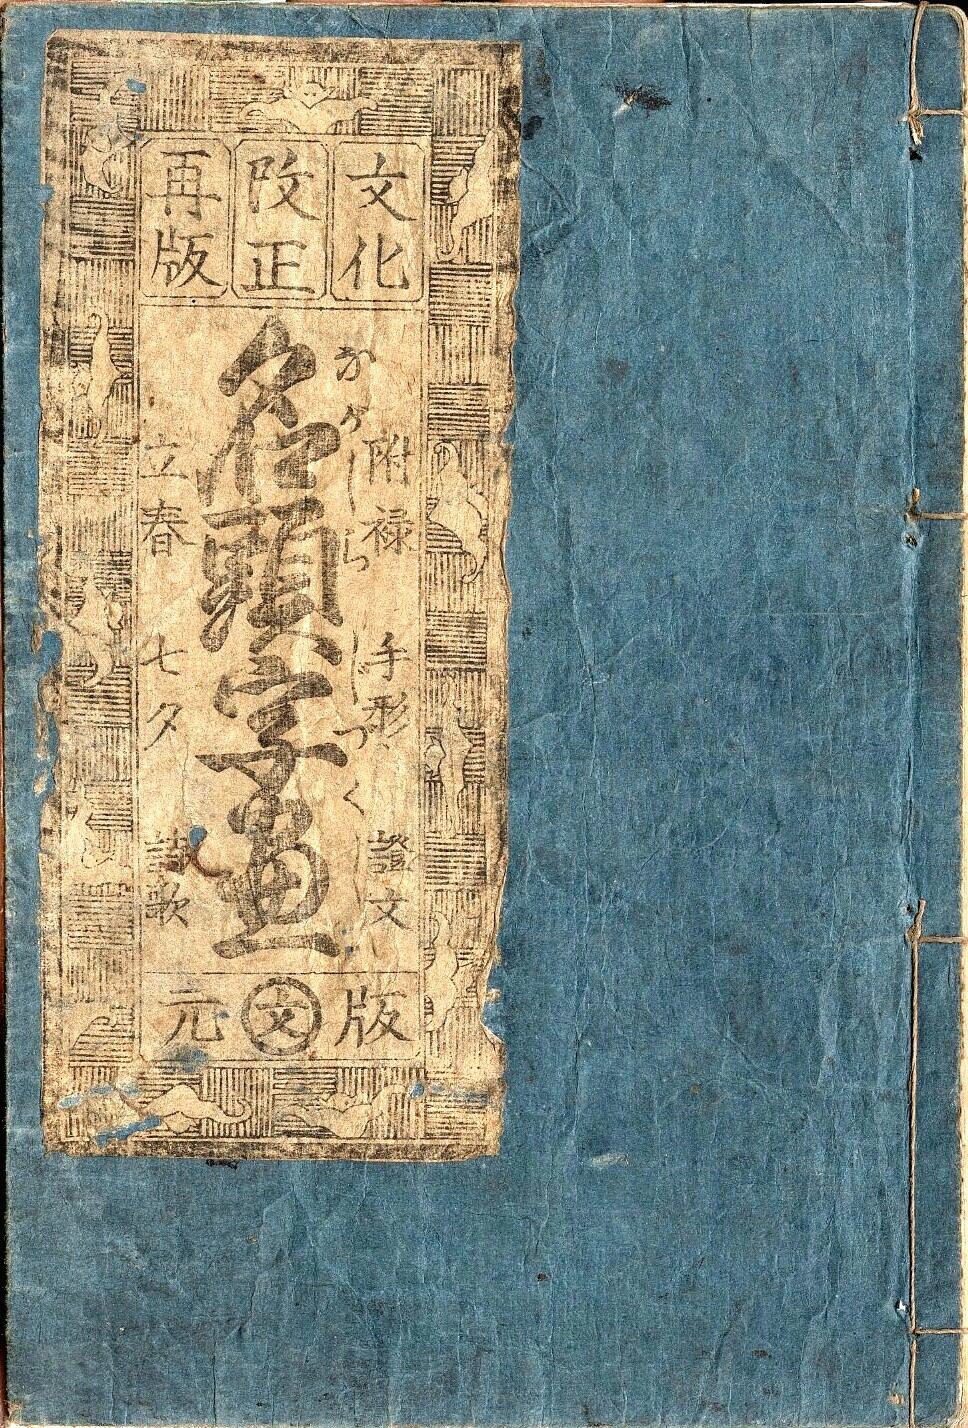 文化
改正
再版
附禄 手形 證文
ながしら じづくし
名頭字盡
立春 七夕 詩歌
版文元